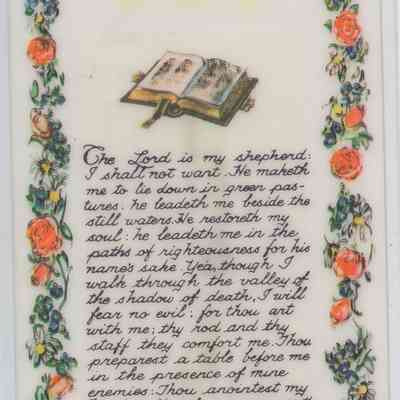 The Lord is my shepherd:
I shall not want. He maketh
me to lie down in green pas-
tures: he leadeth me beside the
still waters. He restoreth my
soul: he leadeth me in the
paths of righteousness for his
name's sake. Yea, though I
walk through the valley of
the shadow of death, I will
fear no evil: for thou art
with me; thy rod and thy
staff they comfort me. Thou
preparest a table before me
in the presence of mine
enemies: Thou anointest my